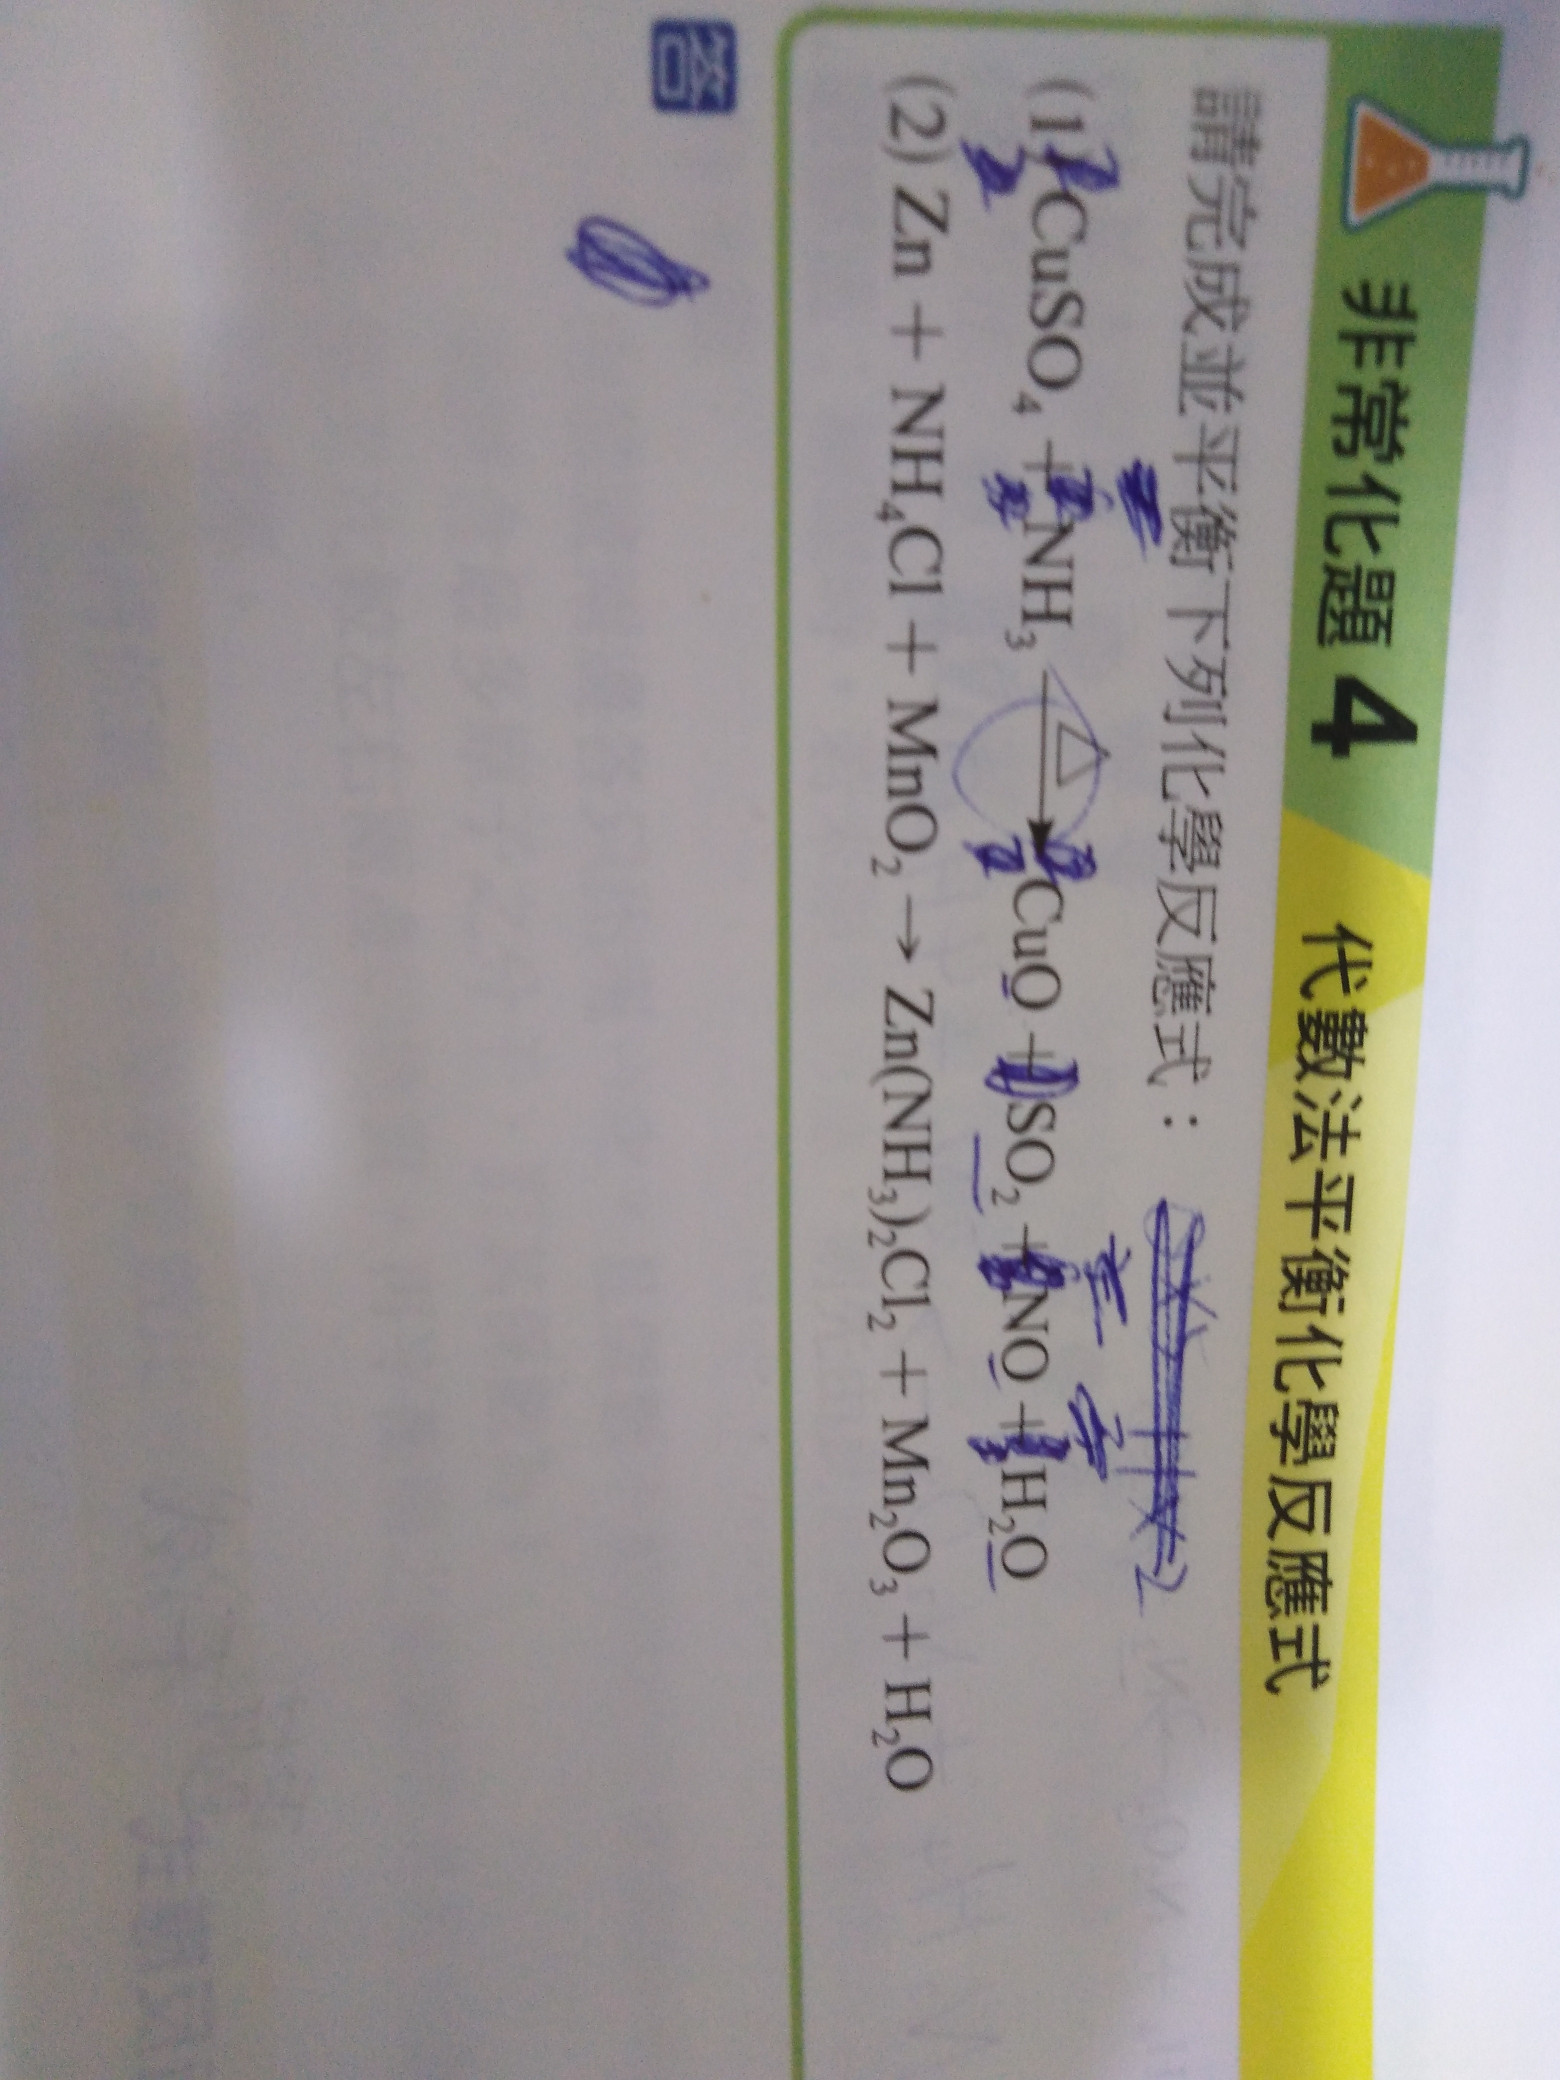 非常化題 4 代數法平衡化學反應式
請完成並平衡下列化學反應式：
(1) CuSO₄ + NH₃ —△→ CuO + SO₂ + NO + H₂O
(2) Zn + NH₄Cl + MnO₂ → Zn(NH₃)₂Cl₂ + Mn₂O₃ + H₂O
答